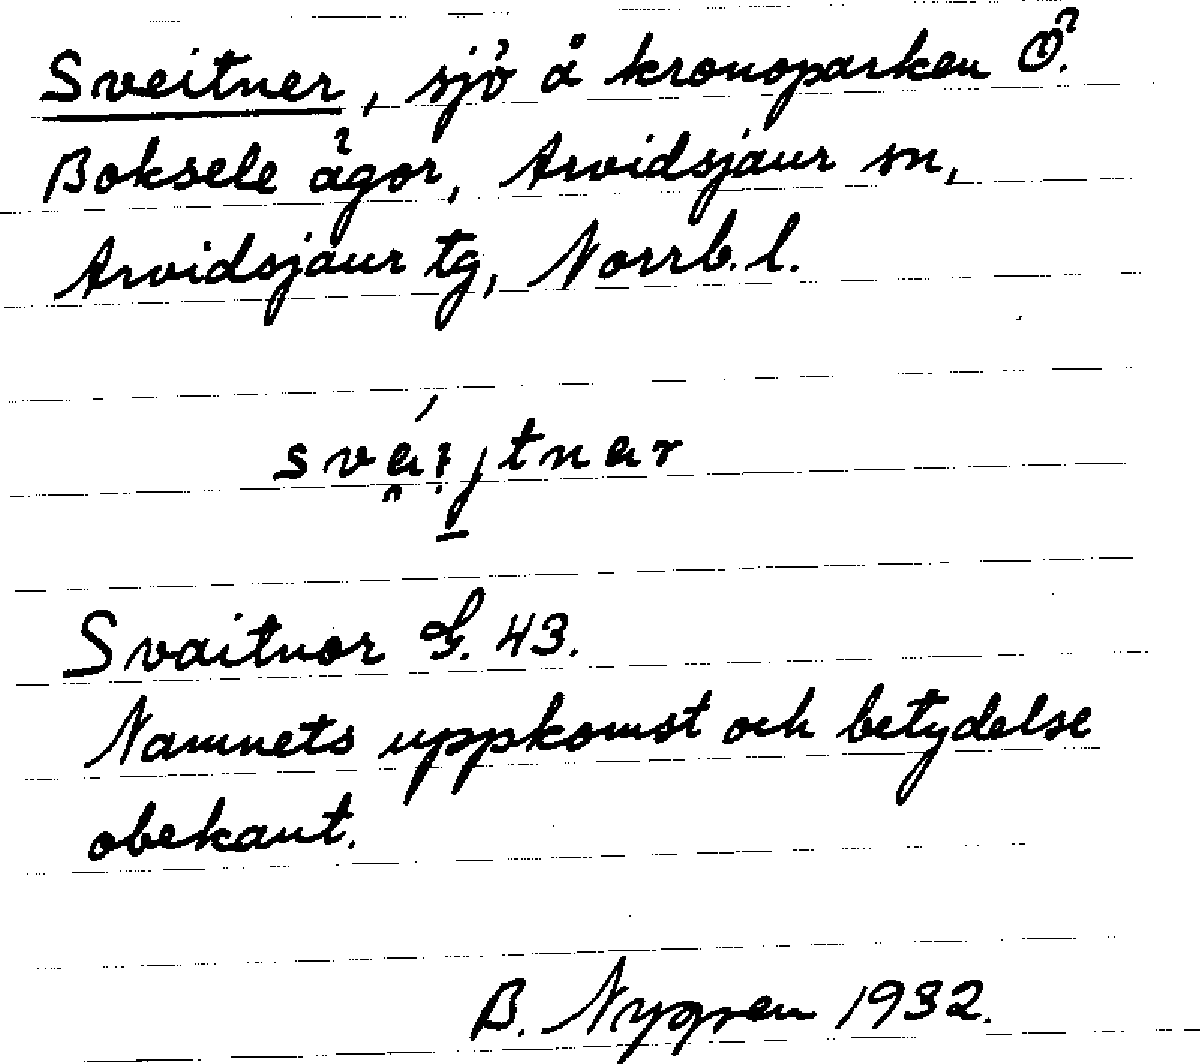 Sveitner, sjö å kronoparken Ö.
Boksele ägor, Arvidsjaur sn,
Arvidsjaur tg, Norrb. l.
Svaitnor G. 43.
Namnets uppkomst och betydelse
obekant.
B. Nygren 1932.